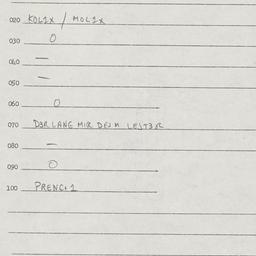 020 KOLIX / MOLIX
030 O
040 —
050 —
060 O
070 DER LANG MIR DEJM LESTER
080 —
090 O
100 PRENC+1